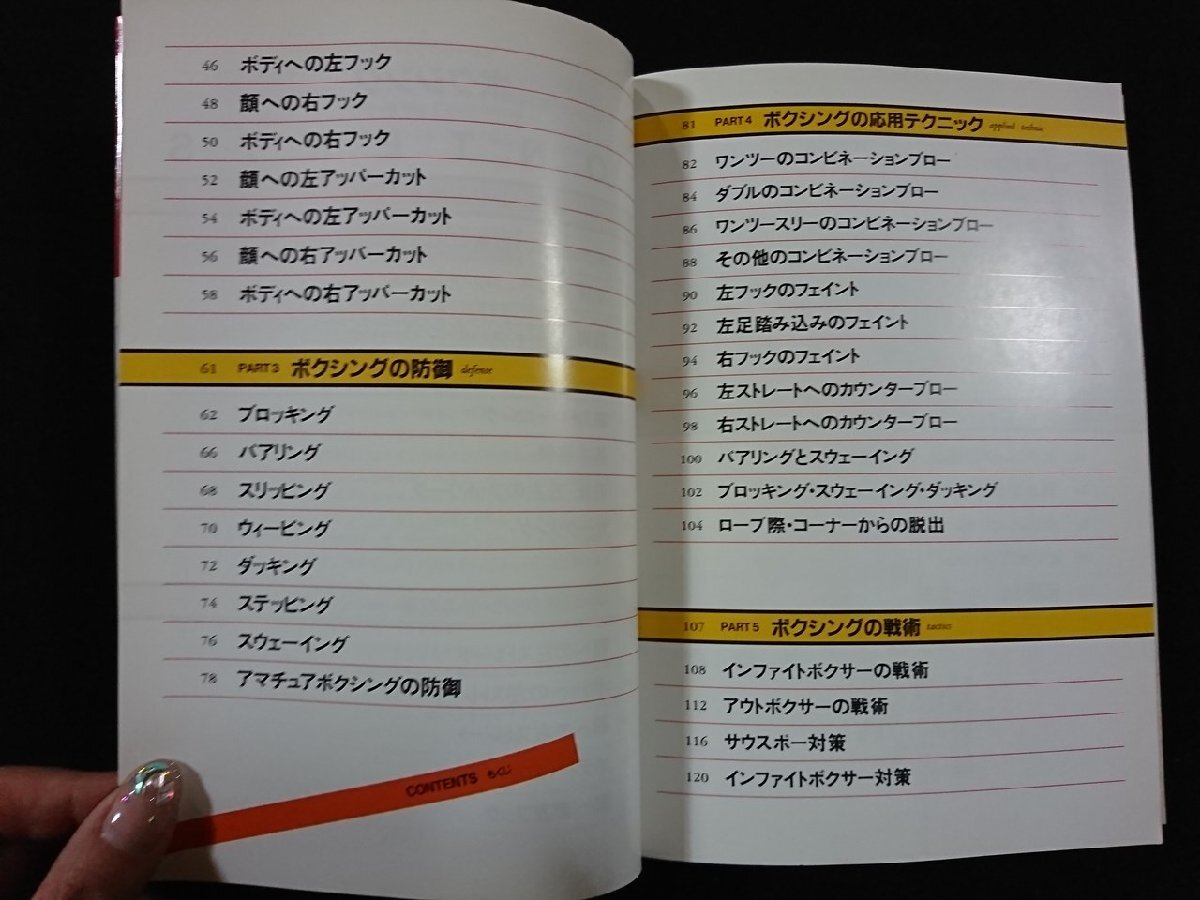 46 ボディへの左フック
48 顔への右フック
50 ボディへの右フック
52 顔への左アッパーカット
54 ボディへの左アッパーカット
56 顔への右アッパーカット
58 ボディへの右アッパーカット
61 PART3 ボクシングの防御 defense
62 ブロッキング
66 パアリング
68 スリッピング
70 ウィービング
72 ダッキング
74 ステッピング
76 スウェーイング
78 アマチュアボクシングの防御
CONTENTS もくじ
81 PART4 ボクシングの応用テクニック applied technic
82 ワンツーのコンビネーションブロー
84 ダブルのコンビネーションブロー
86 ワンツースリーのコンビネーションブロー
88 その他のコンビネーションブロー
90 左フックのフェイント
92 左足踏み込みのフェイント
94 右フックのフェイント
96 左ストレートへのカウンターブロー
98 右ストレートへのカウンターブロー
100 パアリングとスウェーイング
102 ブロッキング・スウェーイング・ダッキング
104 ロープ際・コーナーからの脱出
107 PART5 ボクシングの戦術 tactics
108 インファイトボクサーの戦術
112 アウトボクサーの戦術
116 サウスポー対策
120 インファイトボクサー対策